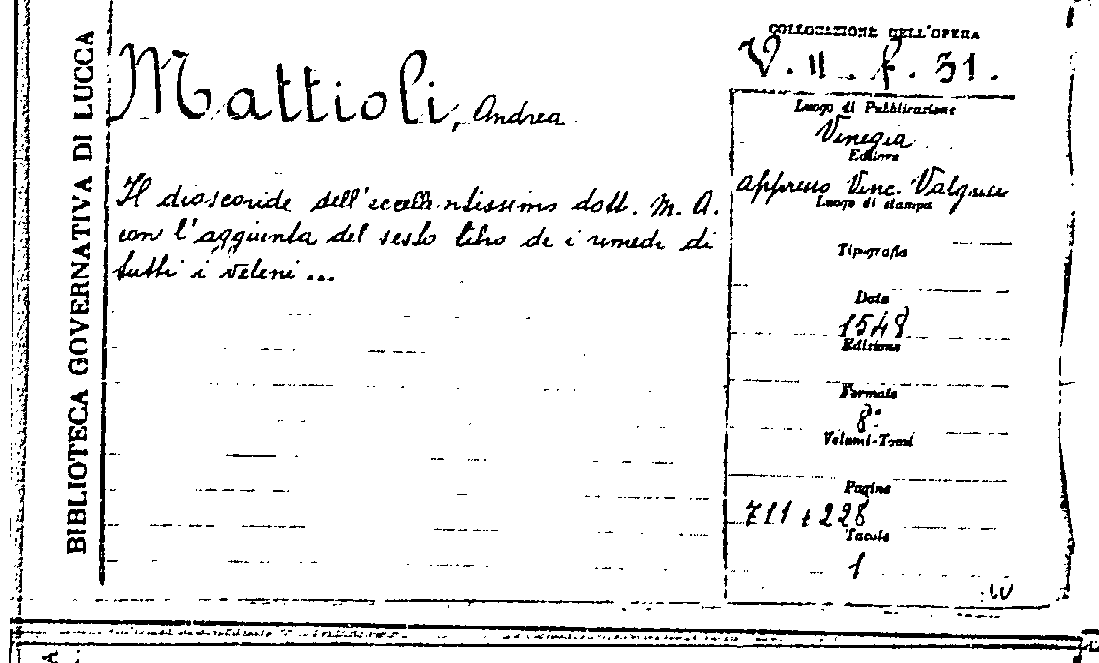 BIBLIOTECA GOVERNATIVA DI LUCCA
Mattioli, Andrea
Il dioscoride dell'eccellentissimo dott. M. A.
con l'aggiunta del sesto libro de i rimedi di
tutti i veleni ...
COLLOCAZIONE DELL'OPERA
V. II. f. 31.
Luogo di Pubblicazione
Venegia
Editore
appresso Vinc. Valgrisi
Luogo di stampa
Tipografia
Data
1548
Edizione
Formato
8°
Volumi-Tomi
Pagine
711 + 228
Tavole
1